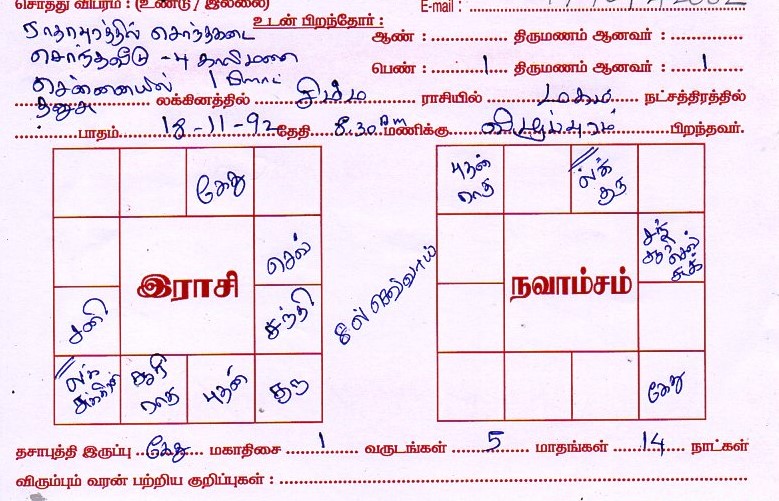 சொத்து விபரம் : (உண்டு / இல்லை) E-mail :
ராதாபுரத்தில் சொந்தகடை உடன் பிறந்தோர் :
சொந்தவீடு - 4 காலிமனை ஆண் : திருமணம் ஆனவர் :
சென்னையில் 1 பிளாட் பெண் : 1 திருமணம் ஆனவர் : 1
தனுசு லக்கினத்தில் சிம்ம ராசியில் மகம் நட்சத்திரத்தில்
பாதம் 18-11-92 தேதி 8.30 AM மணிக்கு விழுப்புரம் பிறந்தவர்.
கேது
செல்
இராசி
சனி சந்தி
லக் சுக்கிரன் சூரி ராகு புதன் குரு
8ல் செவ்வாய்
புதன் ராகு லக் குரு
சந் சூரி செல் சுக்
நவாம்சம்
கேது
தசாபுத்தி இருப்பு கேது மகாதிசை 1 வருடங்கள் 5 மாதங்கள் 14 நாட்கள்
விரும்பும் வரன் பற்றிய குறிப்புகள் :